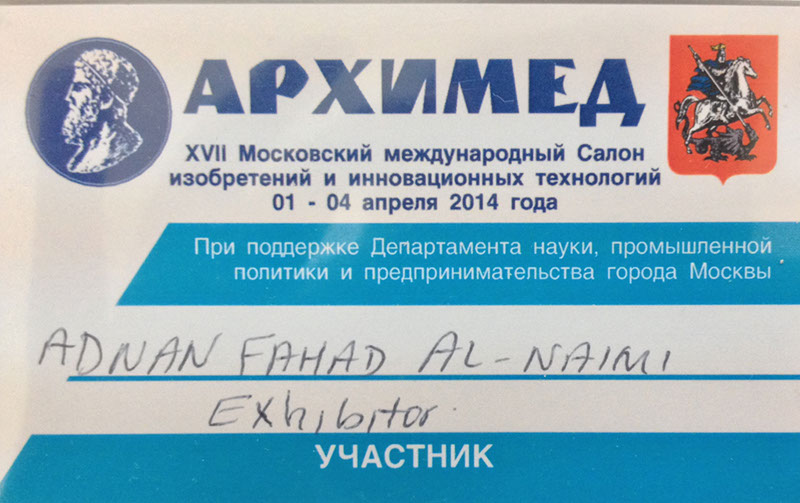 АРХИМЕД
XVII Московский международный Салон
изобретений и инновационных технологий
01 - 04 апреля 2014 года
При поддержке Департамента науки, промышленной
политики и предпринимательства города Москвы
ADNAN FAHAD AL-NAIMI
Exhibitor.
УЧАСТНИК